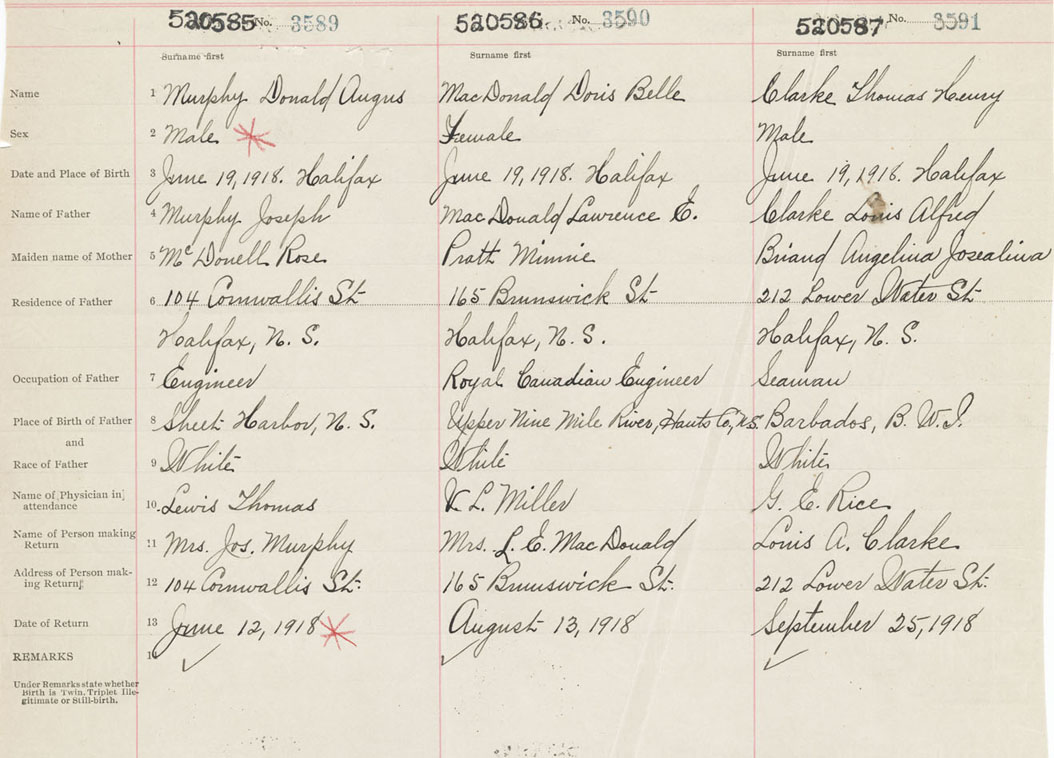 520585 No. 3589 520586 No. 3590 520587 No. 3591
Surname first Surname first Surname first
Name 1 Murphy Donald Angus MacDonald Doris Belle Clarke Thomas Henry
Sex 2 Male Female Male
Date and Place of Birth 3 June 19, 1918. Halifax June 19, 1918. Halifax June 19, 1918. Halifax
Name of Father 4 Murphy Joseph MacDonald Lawrence E. Clarke Louis Alfred
Maiden name of Mother 5 McDonell Rose Pratt Minnie Briand Angelina Josealina
Residence of Father 6 104 Cornwallis St. 165 Brunswick St. 212 Lower Water St.
Halifax, N. S. Halifax, N. S. Halifax, N. S.
Occupation of Father 7 Engineer Royal Canadian Engineer Seaman
Place of Birth of Father 8 Sheet Harbor, N. S. Upper Nine Mile River, Hants Co, N.S. Barbados, B. W. I.
and
Race of Father 9 White White White
Name of Physician in
attendance 10. Lewis Thomas V. L. Miller G. E. Rice
Name of Person making
Return 11 Mrs. Jos. Murphy Mrs. L. E. MacDonald Louis A. Clarke
Address of Person mak-
ing Return 12 104 Cornwallis St. 165 Brunswick St. 212 Lower Water St.
Date of Return 13 June 12, 1918 August 13, 1918 September 25, 1918
REMARKS 14
Under Remarks state whether
Birth is Twin, Triplet Ille-
gitimate or Still-birth.